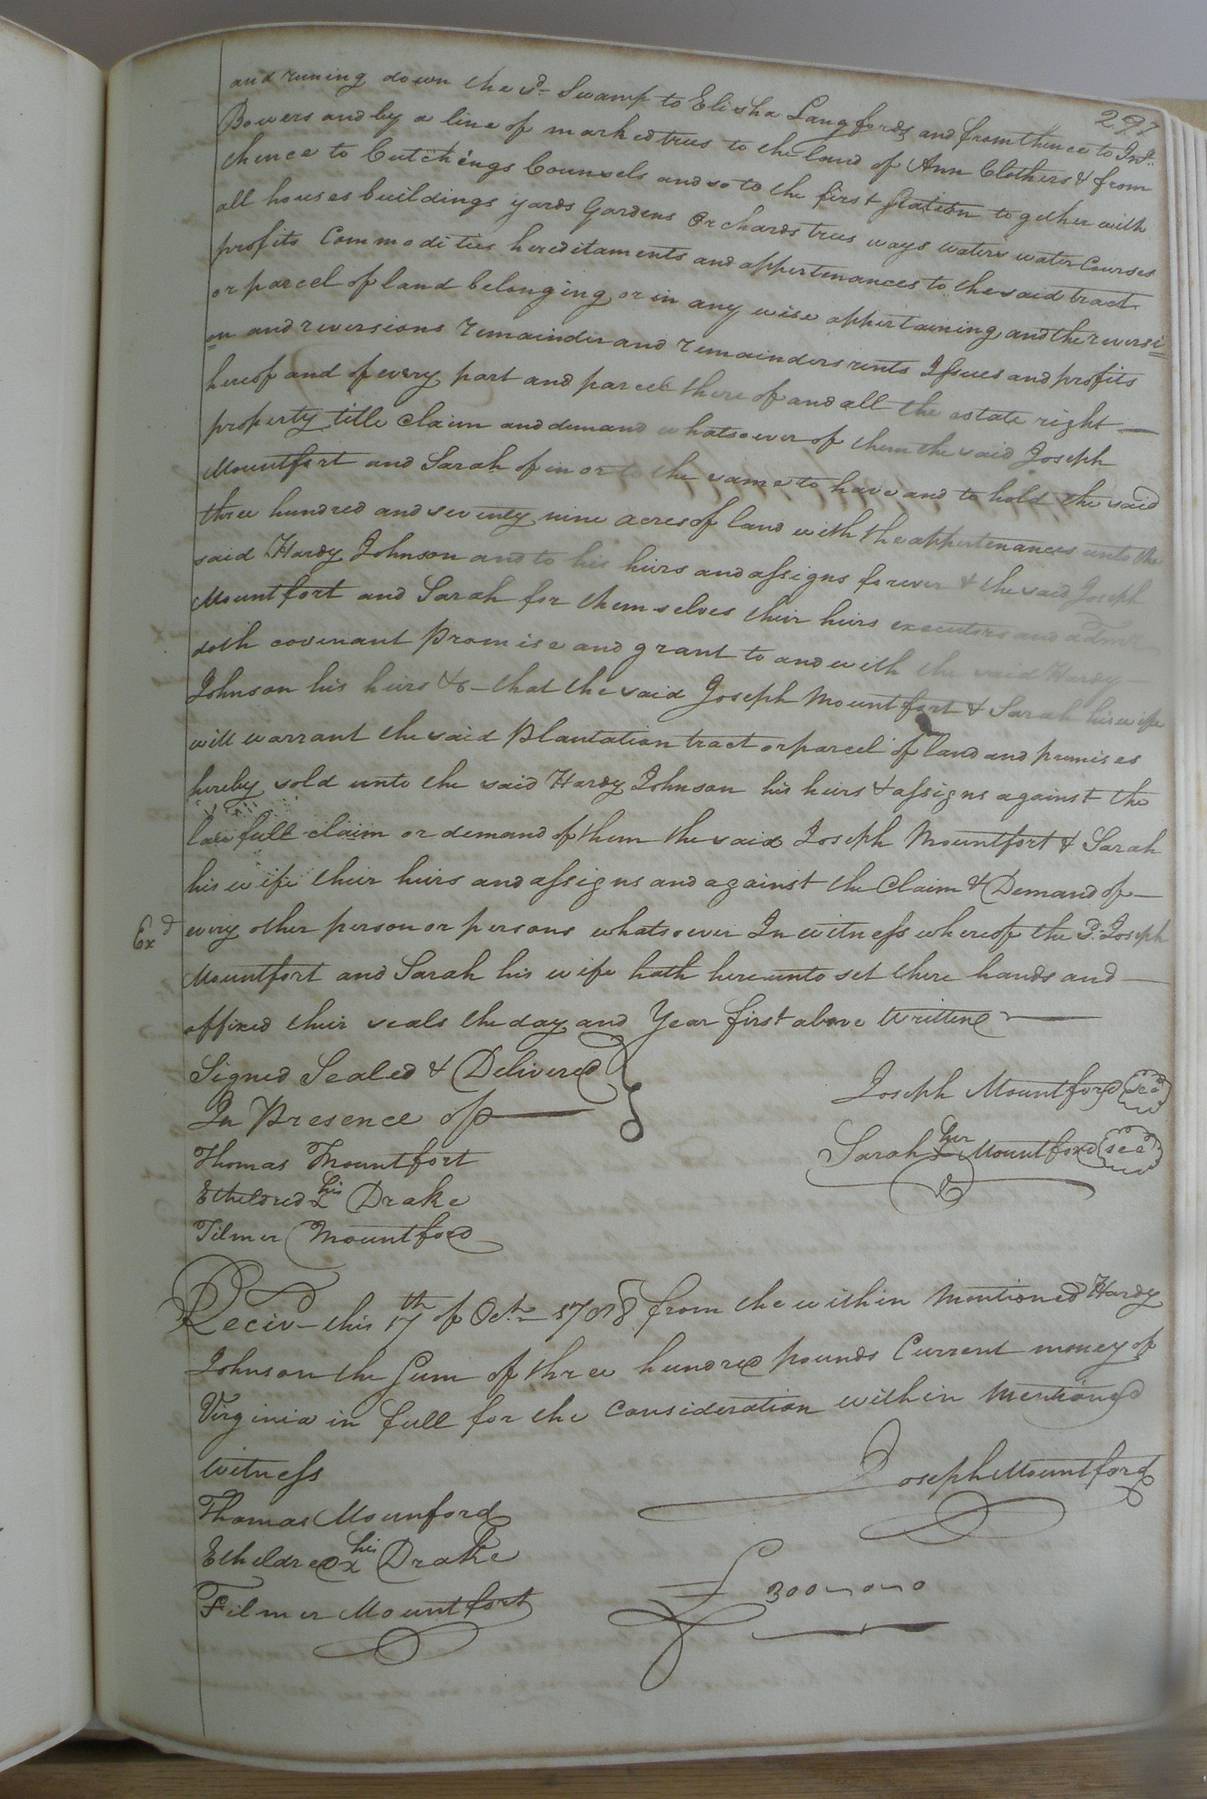 297
and runing down the sd. Swamp to Elisha Langfords and from thence to Jno.
Bowers and by a line of marked trees to the land of Ann Clothers & from
thence to Cutchings Counsels and so to the first station together with
all houses buildings yards Gardens Orchards trees ways waters water Courses
profits Commodities hereditaments and appertenances to the said tract
or parcel of land belonging or in any wise appertaining and the reversi=
on and reversions remainder and remainders rents Issues and profits
hereof and of every part and parcel there of and all the estate right
property title claim and demand whatsoever of them the said Joseph
Mountfort and Sarah of in or to the same to have and to hold the said
three hundred and seventy nine acres of land with the appertenances unto the
said Hardy Johnson and to his heirs and assigns forever & the said Joseph
Mountfort and Sarah for themselves their heirs executors and
doth covenant Promise and grant to and with the said Hardy
Johnson his heirs &c that the said Joseph Mountfort & Sarah his wife
will warrant the said Plantation tract or parcel of land and premises
hereby sold unto the said Hardy Johnson his heirs & assigns against the
law full claim or demand of them the said Joseph Mountfort & Sarah
his wife their heirs and assigns and against the Claim & Demand of
Exd
every other person or persons whatsoever In witness whereof the Sd. Joseph
Mountfort and Sarah his wife hath hereunto set there hands and
affixed their seals the day and Year first above Written
Signed Sealed & Delivered
In Presence of
Joseph Mountford
Sarah her x Mountford
Thomas Mountfort
Etheldred his x Drake
Filmer Mountford
Reciv this 17th of Octr 1788 from the within Mentioned Hardy
Johnson the Sum of three hundred pounds Current money of
Virginia in full for the Consideration within Mentioned
Witness
Joseph Mountford
Thomas Mounford
Etheldred his x Drake
Filmer Mountfort
£ 300-0-0